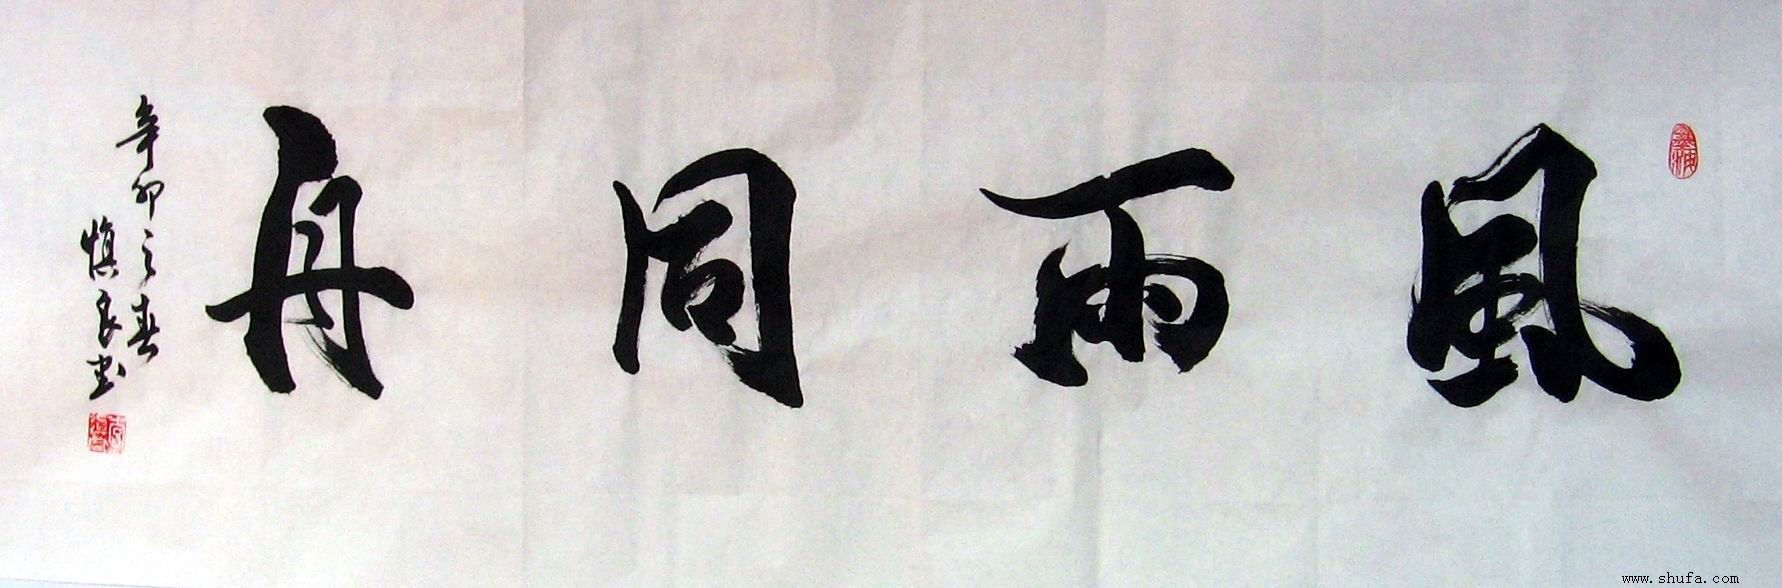 風雨同舟
辛卯之春
慎良书
www.shufa.com